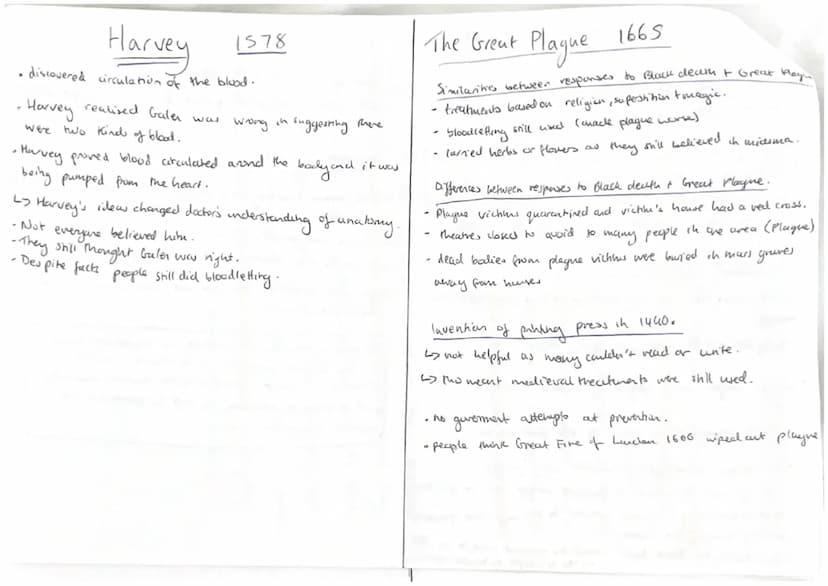 Harvey 1578
• discovered circulation of the blood.
• Harvey realised Galen was wrong in suggesting there
were two kinds of blood.
• Harvey proved blood circulated around the body and it was
being pumped from the heart.
↳ Harvey's ideas changed doctor's understanding of anatomy.
- Not everyone believed him.
- They still thought Galen was right.
- Despite facts people still did bloodletting.
The Great Plague 1665
Similarities between responses to Black death + Great Plague
- treatments based on religion, superstition + magic.
- bloodletting still used (made plague worse)
- carried herbs or flowers as they still believed in miasma.
Differences between responses to Black death + Great Plague.
- Plague victims quarantined and victim's house had a red cross.
- theatres closed to avoid to many people in one area (Plague)
- dead bodies from plague victims were buried in mass graves
away from houses
Invention of printing press in 1440.
↳ not helpful as many couldn't read or write.
↳ this meant medieval treatments were still used.
• no government attempts at prevention.
• people think Great Fire of London 1666 wiped out plague